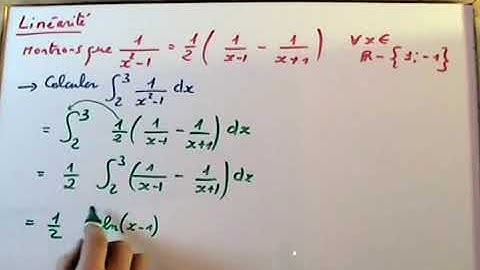 Linéarité
Montrons que 1/(x²-1) = 1/2 ( 1/(x-1) - 1/(x+1) ) ∀ x ∈ ℝ - {1; -1}
→ Calculer ∫₂³ 1/(x²-1) dx
= ∫₂³ 1/2 ( 1/(x-1) - 1/(x+1) ) dx
= 1/2 ∫₂³ ( 1/(x-1) - 1/(x+1) ) dx
= 1/2 ln(x-1)